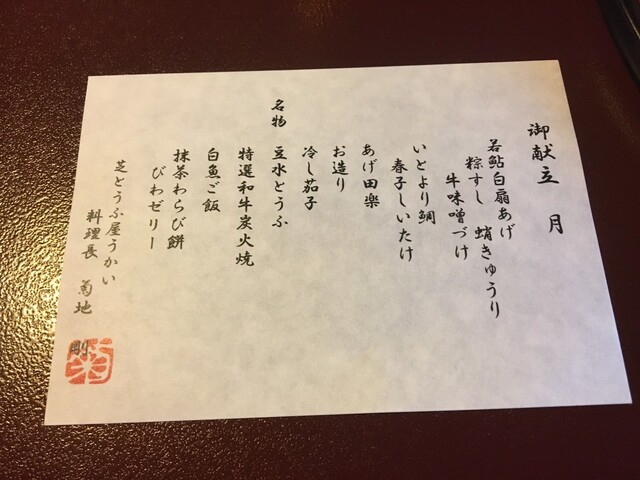 御献立 月
若鮎白扇あげ
粽すし 蛸きゅうり
牛味噌づけ
いとより鯛
春子しいたけ
あげ田楽
お造り
冷し茄子
名物 豆水とうふ
特選和牛炭火焼
白魚ご飯
抹茶わらび餅
びわゼリー
芝とうふ屋うかい
料理長 菊地 剛
菊